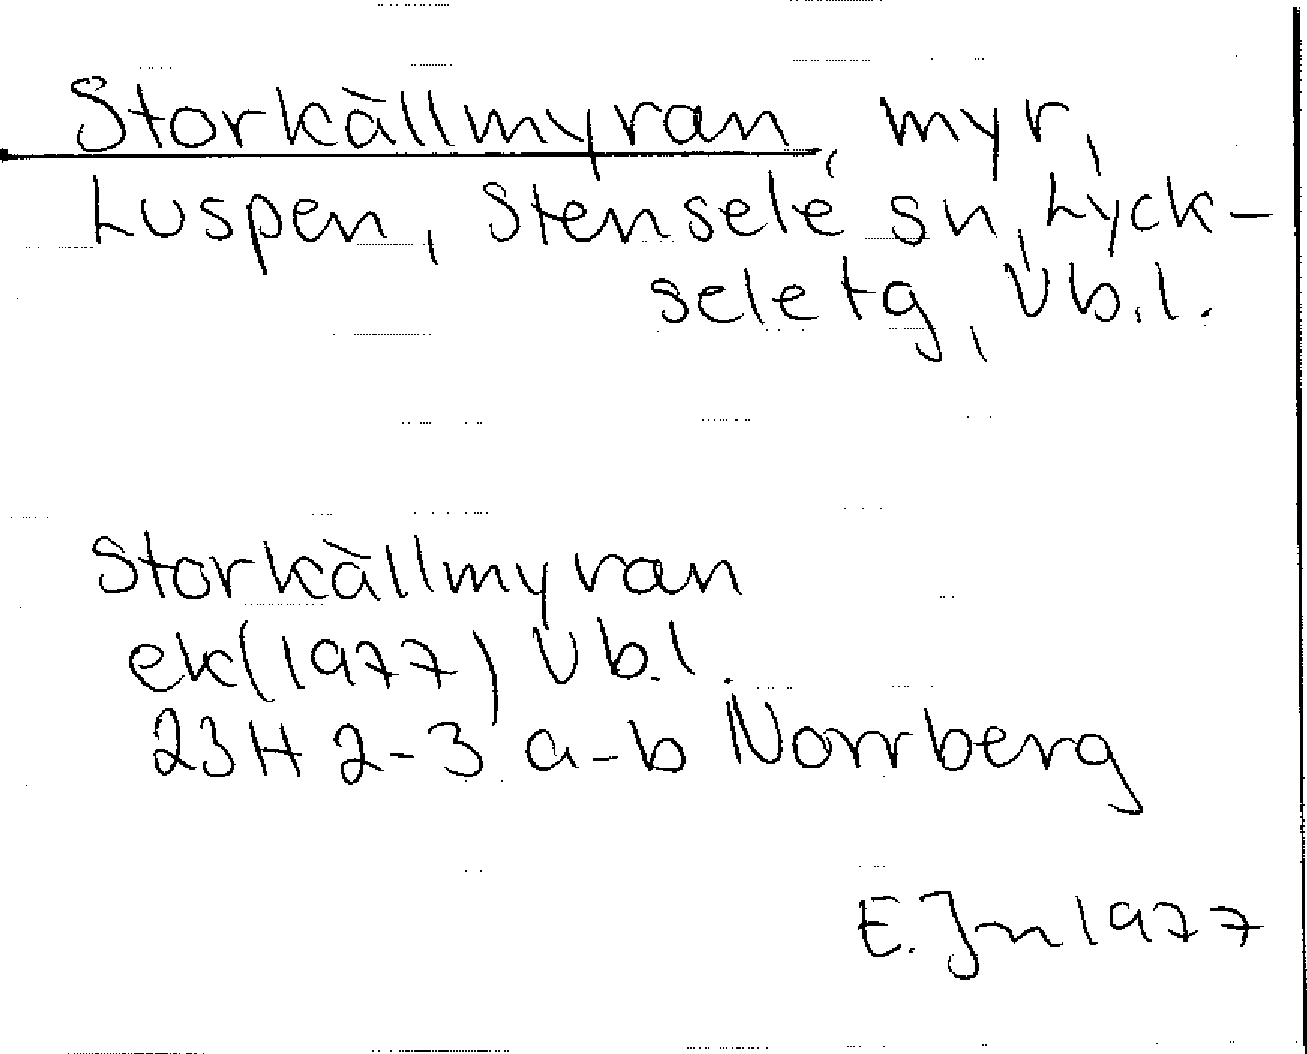 Storkällmyran, myr,
Luspen, Stensele sn, Lyck-
sele tg, Vb.l.
Storkällmyran
ek (1977) Vb.l.
23H 2-3 a-b Norrberg
E. Jn 1977